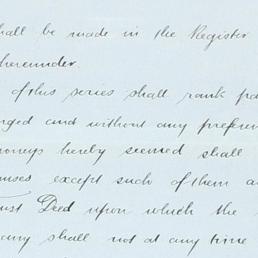 shall be made in the Register
hereunder.
of this series shall rank pa
rged and without any preferen
moneys hereby secured shall
mises except such of them a
ust Deed upon which the
any shall not at any time